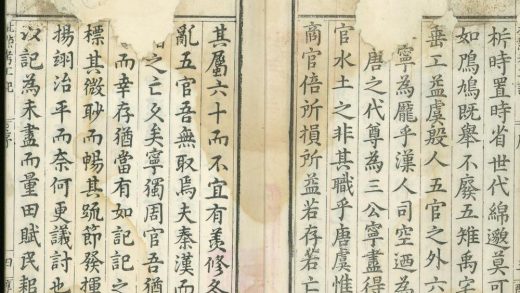 析時置時省世代綿邈莫可
如鳲鳩既舉不廢五雉禹字
垂工益虞殷人五官之外六
寧為龐乎漢人司空迺為
唐之代尊為三公寧盡得
官水土之非其職乎唐虞惟
商官倍所損所益若存若亡
其屬六十而不宜有羨修冬
亂五官吾無取焉夫秦漢而
之亡久矣寧獨周官吾猶
而幸存猶當有如記記之
標其微眇而暢其䟽節發揮
揚翊治平而奈何更議討也
以記為未盡而量田賦民報